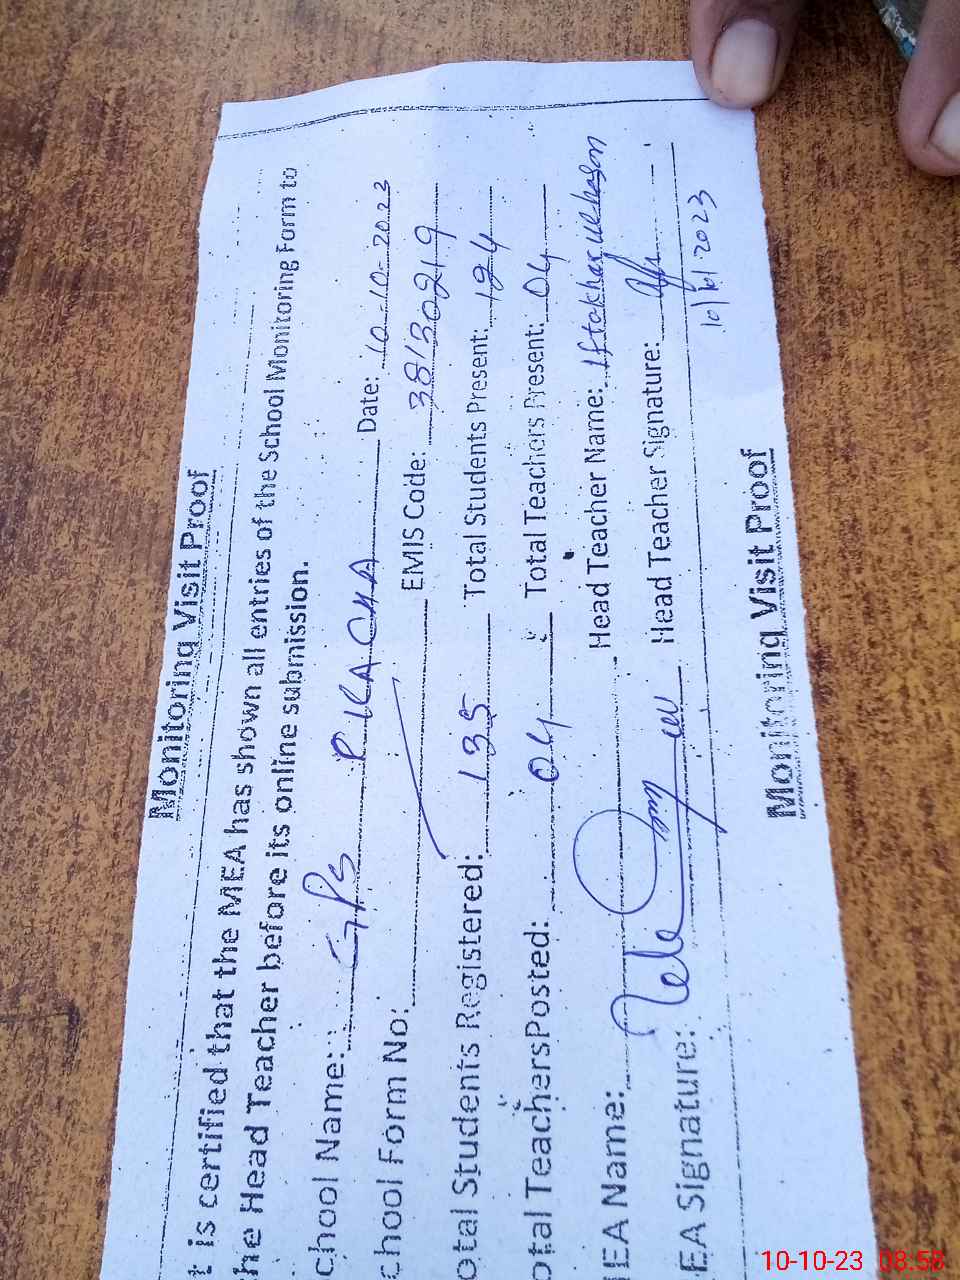 Monitoring Visit Proof
t is certified that the MEA has shown all entries of the School Monitoring Form to
he Head Teacher before its online submission.
chool Name: GPS PKACHA Date: 10-10-2023
chool Form No: EMIS Code: 38130219
otal Students Registered: 135 Total Students Present: 124
otal TeachersPosted: 04 Total Teachers Present: 04
IEA Name: Head Teacher Name: Iftokharulhason
EA Signature: Head Teacher Signature:
10/10/2023
Monitoring Visit Proof
10-10-23 08:58